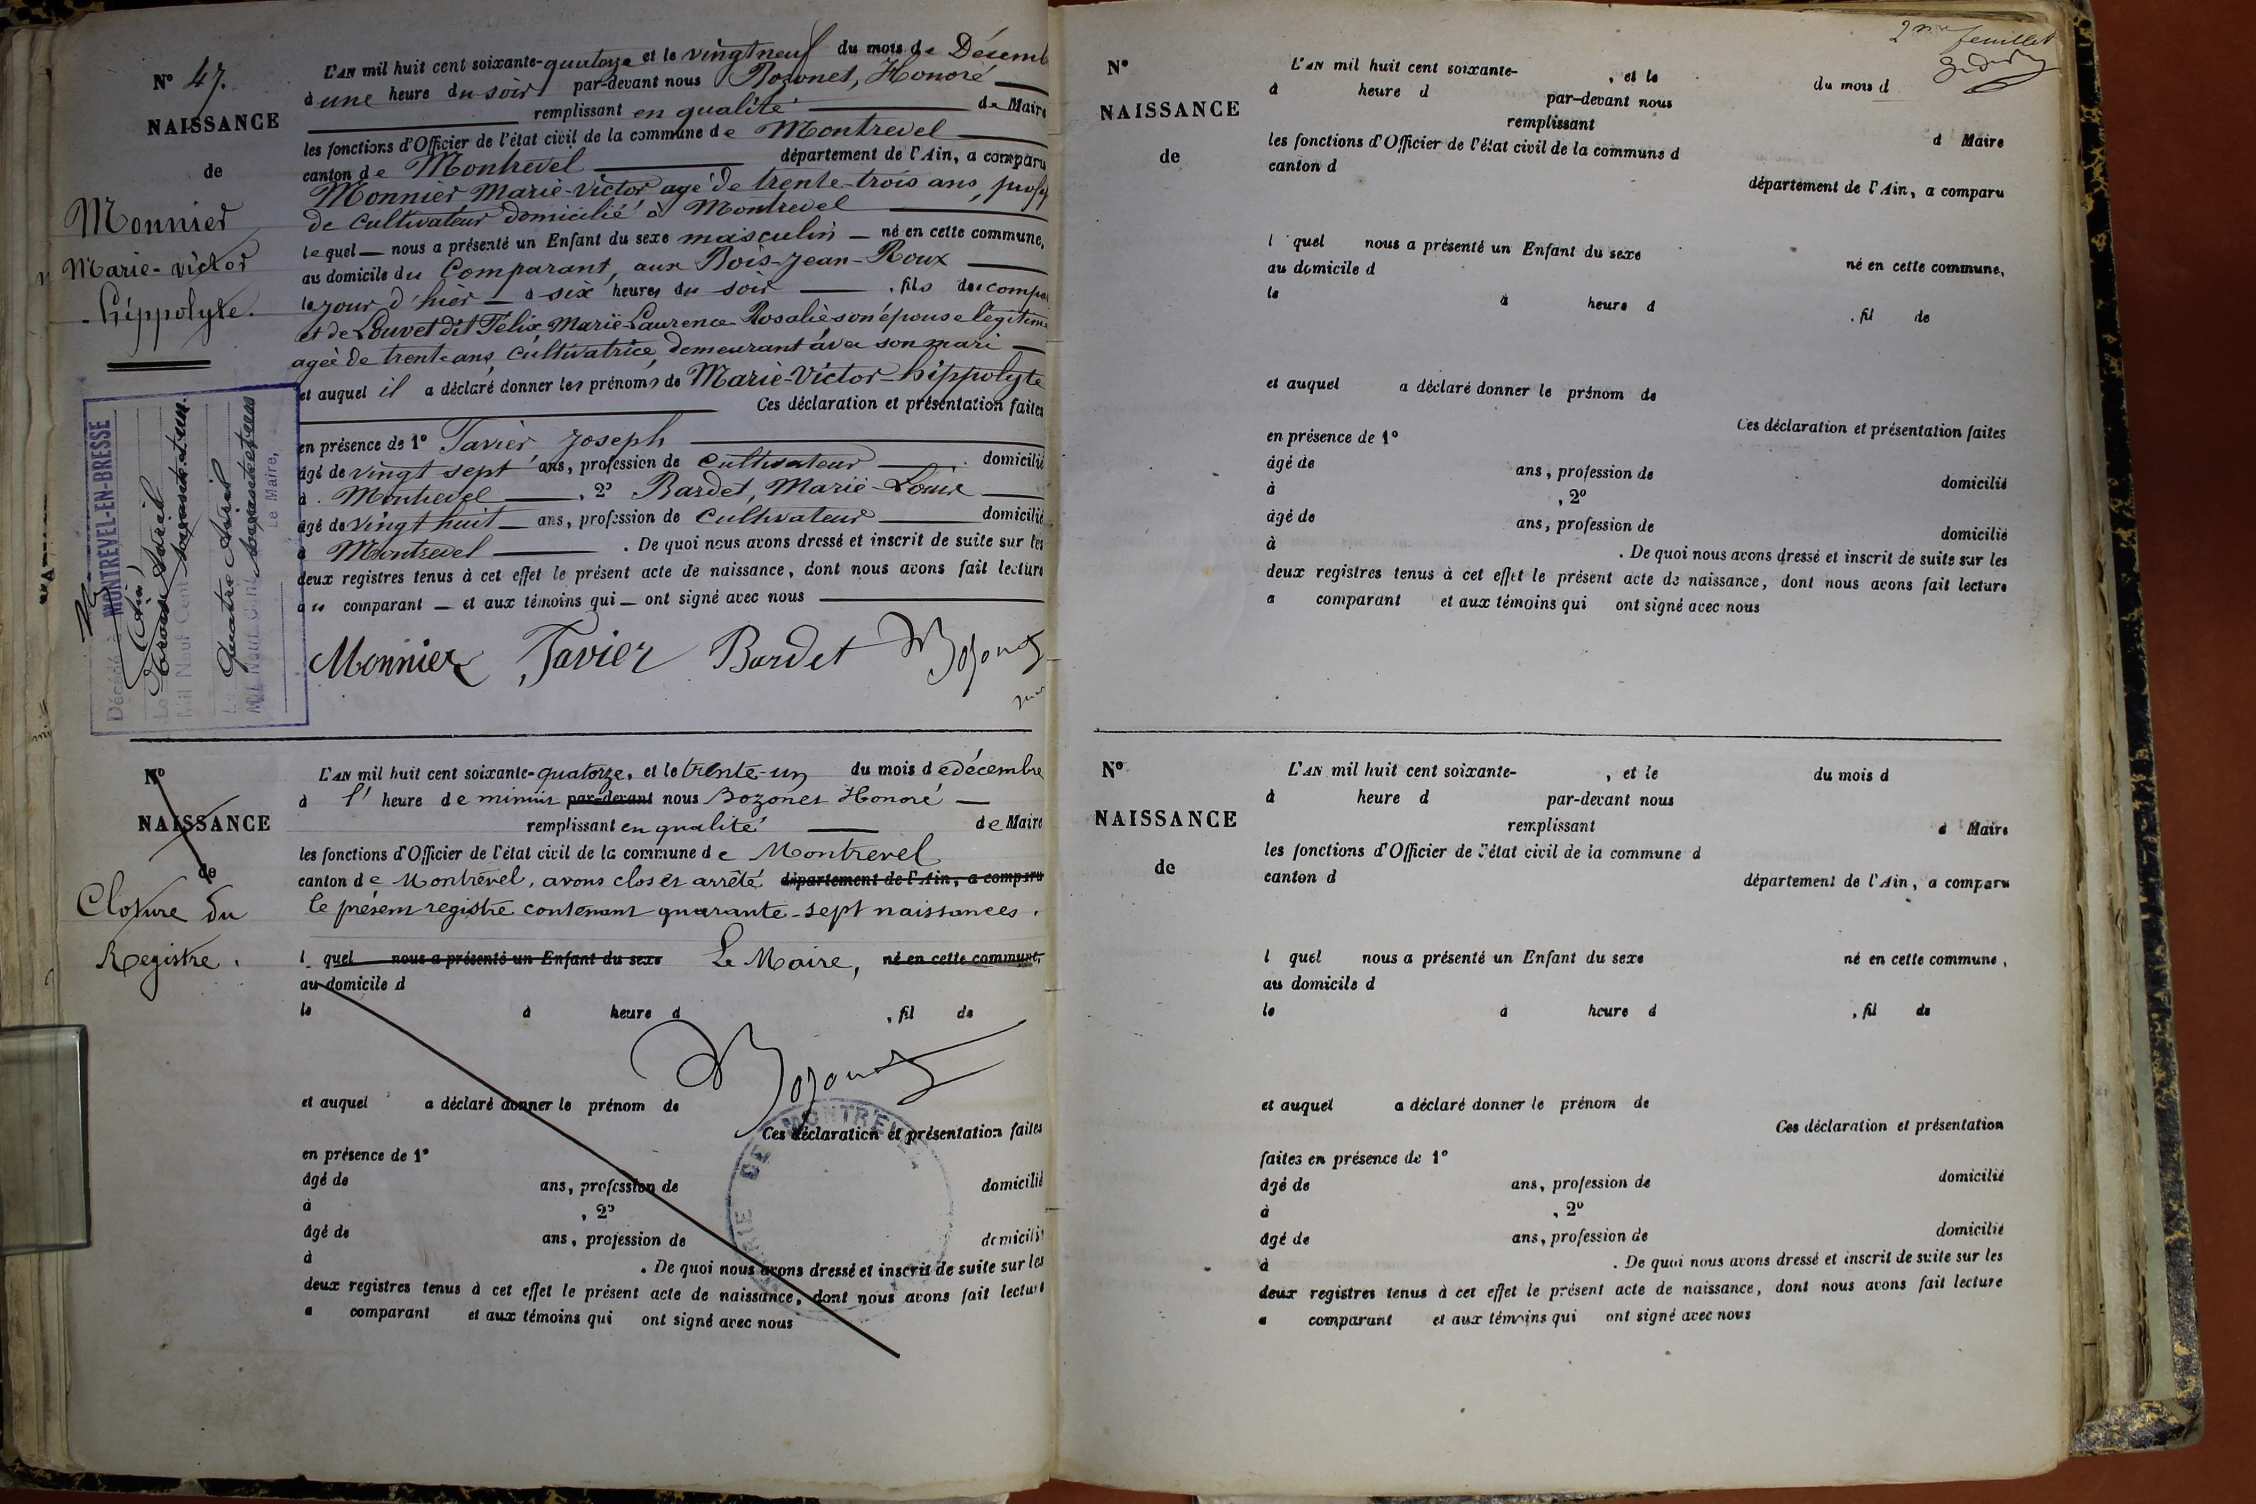 N° 47.
NAISSANCE
de
Monnier
Marie-victor
hippolyte.
L'AN mil huit cent soixante-quatorze et le vingt neuf du mois de Désemb
à une heure du soir par-devant nous Bozonet, Honoré
remplissant en qualité de Maire
les fonctions d'Officier de l'état civil de la commune de Montrevel
canton de Montrevel département de l'Ain, a comparu
Monnier Marie-Victor agé de trente-trois ans,
de cultivateur domicilié à Montrevel
lequel nous a présenté un Enfant du sexe masculin né en cette commune,
au domicile du Comparant, aux Bois-Jean-Roux
le jour d'hier à six heures du soir , fils de
et de Louvet dit Félix Marie-Laurence Rosalie son épouse légitime
agée de trente ans, cultivatrice, demeurant avec son mari
et auquel il a déclaré donner les prénoms de Marie-Victor-hippolyte
Ces déclaration et présentation faites
en présence de 1° Tavier, Joseph
âgé de vingt sept ans, profession de cultivateur domicilié
à Montrevel , 2° Bardet, Marie-Louis
âgé de vingt huit ans, profession de cultivateur domicilié
à Montrevel . De quoi nous avons dressé et inscrit de suite sur les
deux registres tenus à cet effet le présent acte de naissance, dont nous avons fait lecture
au comparant et aux témoins qui ont signé avec nous
Monnier Tavier Bardet Bozonet
Décédé à MONTREVEL-EN-BRESSE
(Ain)
Le trois Avril
Mil Neuf Cent soixante et un.
Le quatre Avril
Mil Neuf Cent soixante et un
Le Maire,
N°
NAISSANCE
de
Cloture du
Registre.
L'AN mil huit cent soixante-quatorze, et le trente-un du mois de décembre
à l' heure de minuit par-devant nous Bozonet Honoré
remplissant en qualité de Maire
les fonctions d'Officier de l'état civil de la commune de Montrevel
canton de Montrevel, avons clos et arrêté département de l'Ain, a comparu
le présent registre contenant quarante-sept naissances.
l quel nous a présenté un Enfant du sexe Le Maire, né en cette commune,
au domicile d
le à heure d , fil de
Bozonet
et auquel a déclaré donner le prénom de
MAIRIE DE MONTREVEL
Ces déclaration et présentation faites
en présence de 1°
âgé de ans, profession de domicilié
à , 2°
âgé de ans, profession de domicilié
à . De quoi nous avons dressé et inscrit de suite sur les
deux registres tenus à cet effet le présent acte de naissance, dont nous avons fait lecture
a comparant et aux témoins qui ont signé avec nous
2me feuillet
N°
NAISSANCE
de
L'AN mil huit cent soixante- , et le du mois d
à heure d par-devant nous
remplissant d Maire
les fonctions d'Officier de l'état civil de la commune d
canton d département de l'Ain, a comparu
l quel nous a présenté un Enfant du sexe né en cette commune,
au domicile d
le à heure d , fil de
et auquel a déclaré donner le prénom de
Ces déclaration et présentation faites
en présence de 1°
âgé de ans, profession de domicilié
à , 2°
âgé de ans, profession de domicilié
à . De quoi nous avons dressé et inscrit de suite sur les
deux registres tenus à cet effet le présent acte de naissance, dont nous avons fait lecture
a comparant et aux témoins qui ont signé avec nous
N°
NAISSANCE
de
L'AN mil huit cent soixante- , et le du mois d
à heure d par-devant nous
remplissant d Maire
les fonctions d'Officier de l'état civil de la commune d
canton d département de l'Ain, a comparu
l quel nous a présenté un Enfant du sexe né en cette commune,
au domicile d
le à heure d , fil de
et auquel a déclaré donner le prénom de
Ces déclaration et présentation
faites en présence de 1°
âgé de ans, profession de domicilié
à , 2°
âgé de ans, profession de domicilié
à . De quoi nous avons dressé et inscrit de suite sur les
deux registres tenus à cet effet le présent acte de naissance, dont nous avons fait lecture
a comparant et aux témoins qui ont signé avec nous